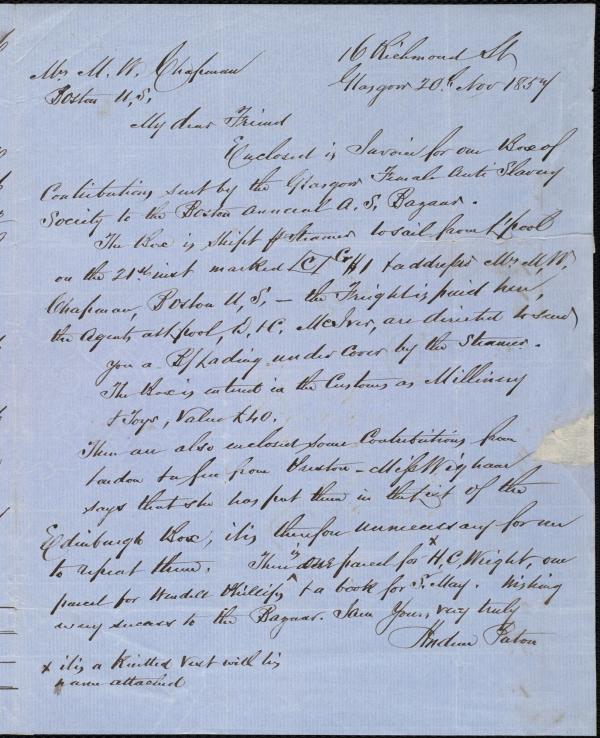 16 Richmond St
Glasgow 20th Nov 1857
Mrs M. W. Chapman
Boston U, S,
My dear Friend
Enclosed is Invoice for our Box of
Contributions sent by the Glasgow Female Anti Slavery
Society to the Boston annual A. S. Bazaar.
The Box is shipt pr Steamer to sail from L'pool
on the 21st inst marked C G #1 & address Mrs M, W,
Chapman, Boston U, S, — the Freight is paid here,
the Agents at L'pool, D, & C, McIver, are directed to send
you a B/Lading under cover by the Steamer.
The Box is entered in the Customs as Millinery
& Toys, Value £40.
There are also enclosed some Contributions from
London & a few from Preston — Miss Wigham
says that she has put them in the list of the
Edinburgh Box, it is therefore unnecessary for me
to repeat them. There is one parcel for x H, C, Wright, one
parcel for Wendell Phillips & a book for S. May. Wishing
every success to the Bazaar. I am Yours, very truly
Andrew Paton
x it is a Knitted Vest with his
name attached